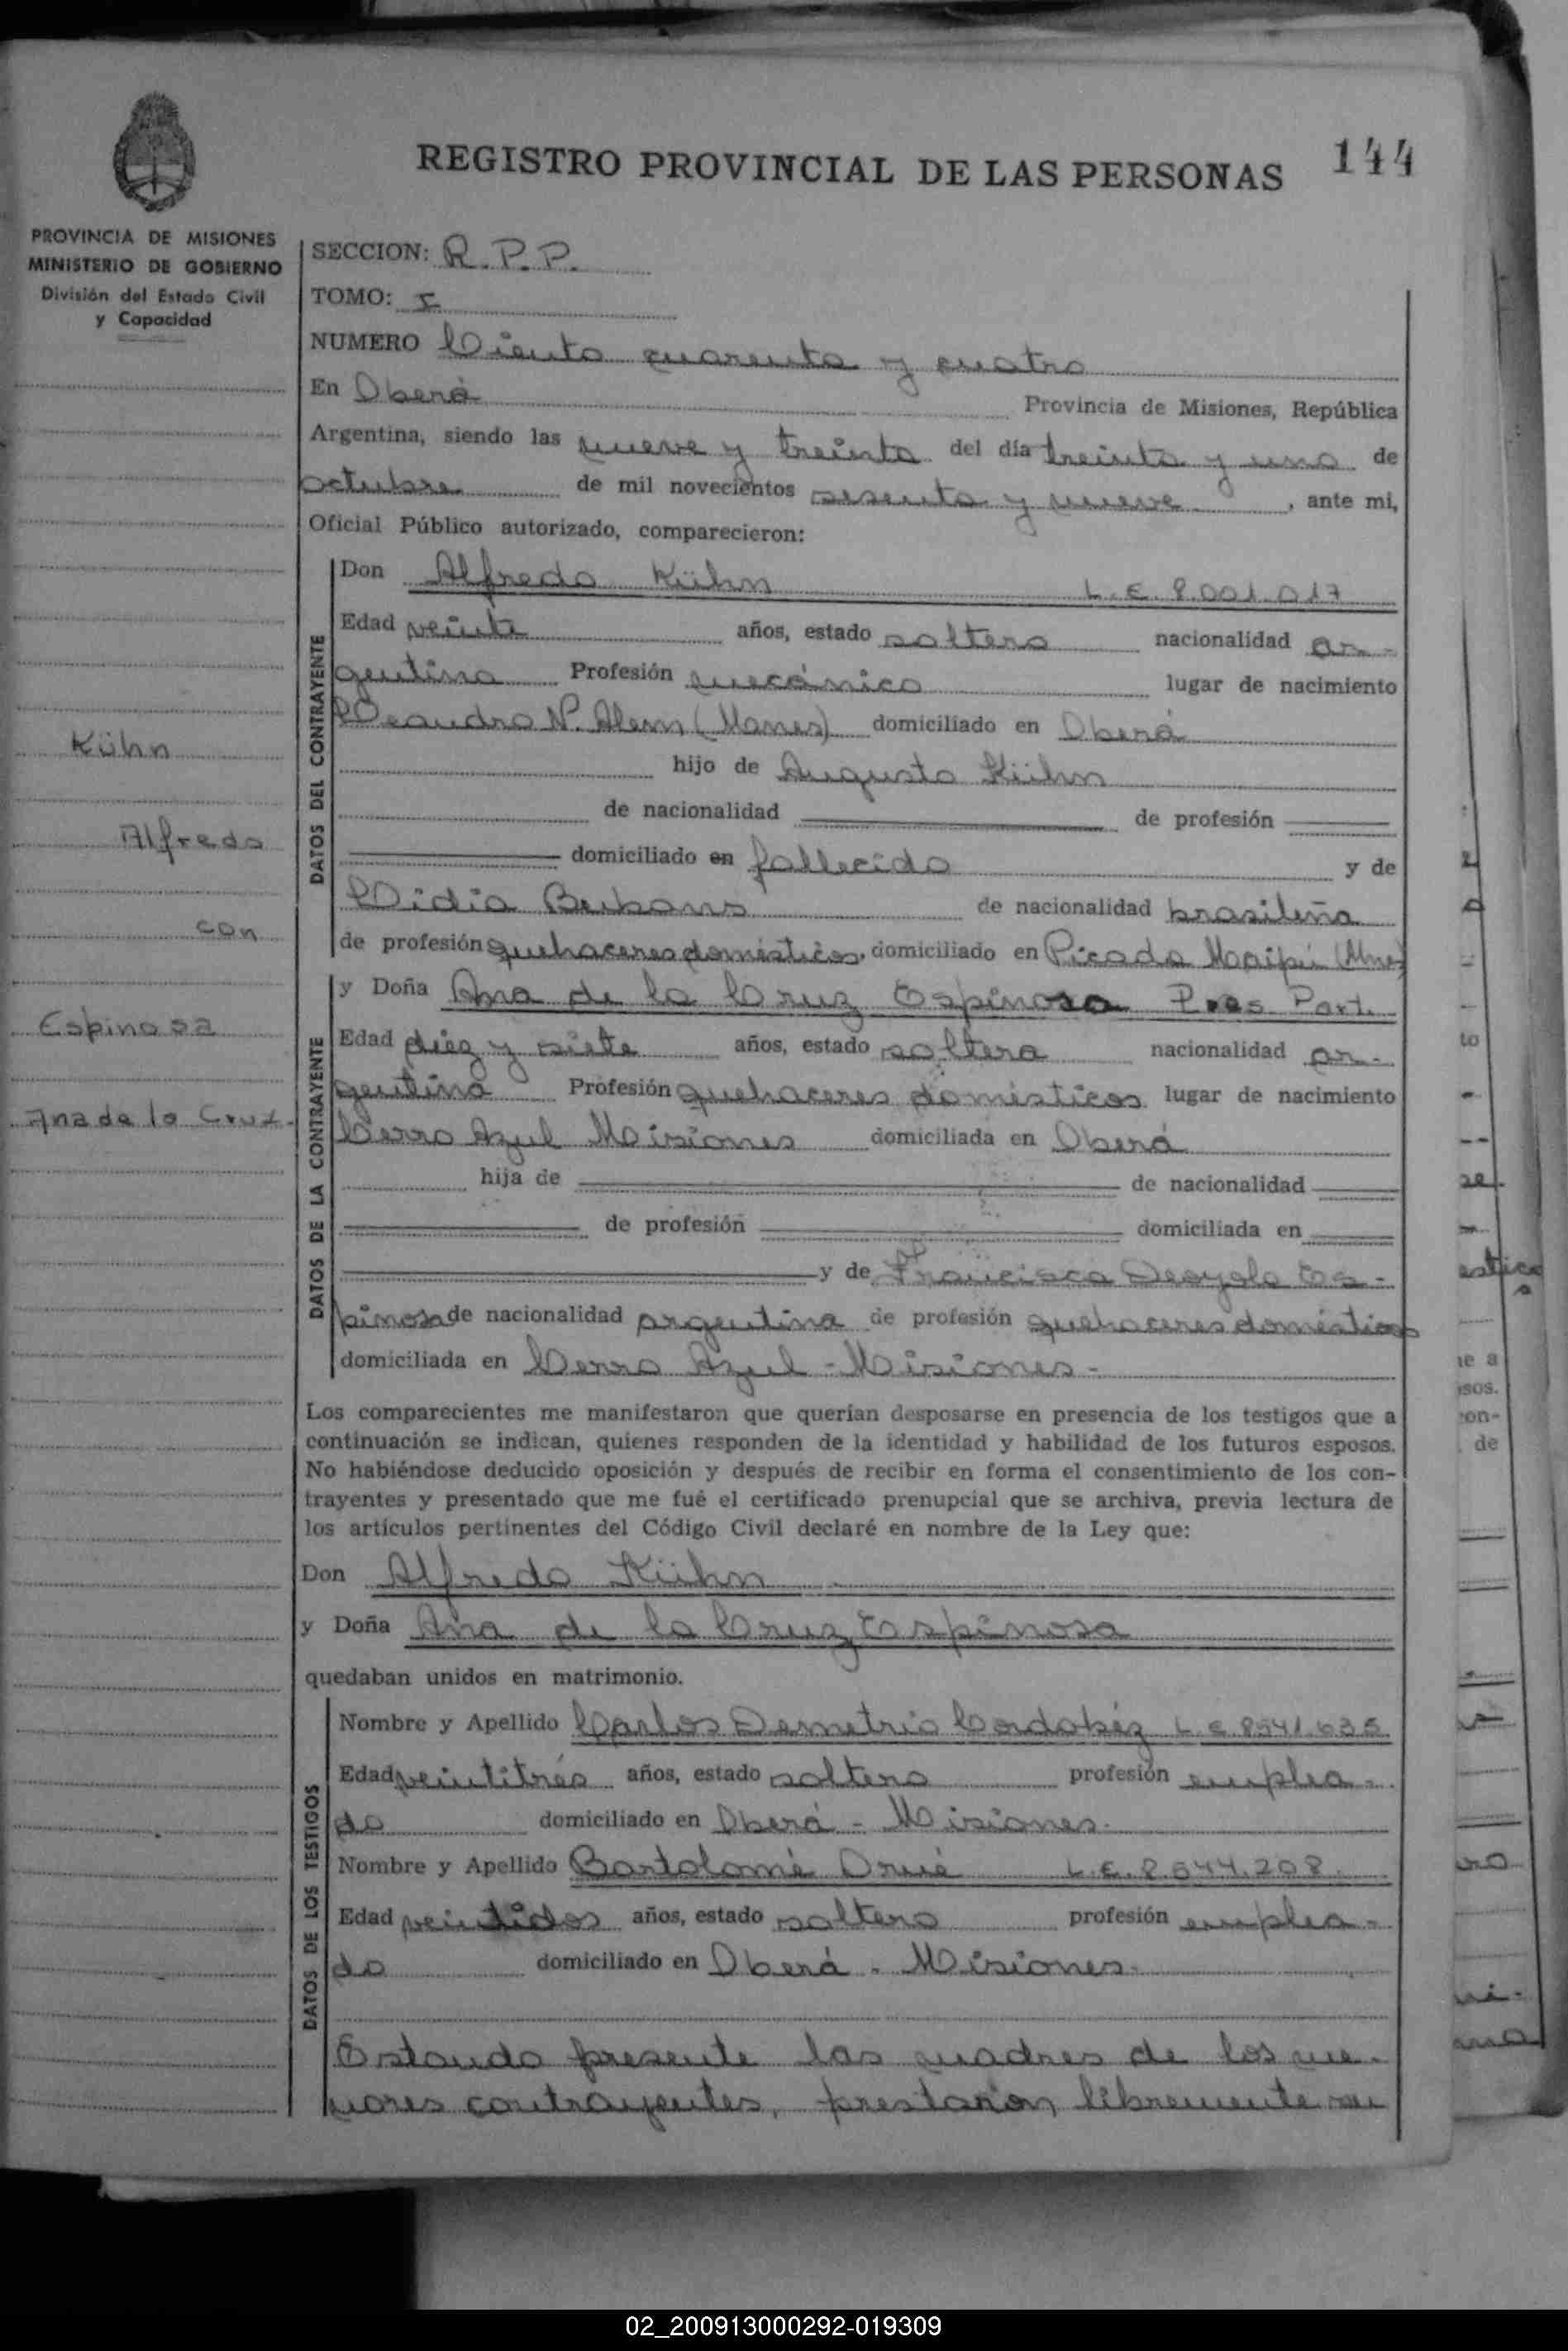 REGISTRO PROVINCIAL DE LAS PERSONAS 144
PROVINCIA DE MISIONES
MINISTERIO DE GOBIERNO
División del Estado Civil
y Capacidad
Kühn
Alfredo
con
Espinosa
Ana de la Cruz.
SECCION: R.P.P.
TOMO: I
NUMERO Ciento cuarenta y cuatro
En Oberá Provincia de Misiones, República
Argentina, siendo las nueve y treinta del día treinta y uno de
octubre de mil novecientos sesenta y nueve, ante mi,
Oficial Público autorizado, comparecieron:
DATOS DEL CONTRAYENTE
Don Alfredo Kühn L.E. 8.001.017
Edad veinte años, estado soltero nacionalidad ar-
gentina Profesión mecánico lugar de nacimiento
Leandro N. Alem (Mnes) domiciliado en Oberá
hijo de Augusto Kühn
de nacionalidad de profesión
domiciliado en fallecido y de
Lidia de nacionalidad brasileña
de profesión quehaceres domésticos, domiciliado en Picada Maipú (Mnes)
DATOS DE LA CONTRAYENTE
y Doña Ana de la Cruz Espinosa Part.
Edad diez y siete años, estado soltera nacionalidad ar-
gentina Profesión quehaceres domésticos lugar de nacimiento
Cerro Azul Misiones domiciliada en Oberá
hija de de nacionalidad
de profesión domiciliada en
y de Francisca Es-
pinosa de nacionalidad argentina de profesión quehaceres domésticos
domiciliada en Cerro Azul - Misiones -
Los comparecientes me manifestaron que querían desposarse en presencia de los testigos que a
continuación se indican, quienes responden de la identidad y habilidad de los futuros esposos.
No habiéndose deducido oposición y después de recibir en forma el consentimiento de los con-
trayentes y presentado que me fué el certificado prenupcial que se archiva, previa lectura de
los artículos pertinentes del Código Civil declaré en nombre de la Ley que:
Don Alfredo Kühn
y Doña Ana de la Cruz Espinosa
quedaban unidos en matrimonio.
DATOS DE LOS TESTIGOS
Nombre y Apellido Carlos Demetrio Cordobéz L.E. 8541.635
Edad veintitrés años, estado soltero profesión emplea-
do domiciliado en Oberá - Misiones.
Nombre y Apellido Bartolomé Orué L.E. 8.544.208.
Edad veintidos años, estado soltero profesión emplea-
do domiciliado en Oberá - Misiones.
Estando presente las madres de los me-
nores contrayentes, prestaron libremente su
02_200913000292-019309